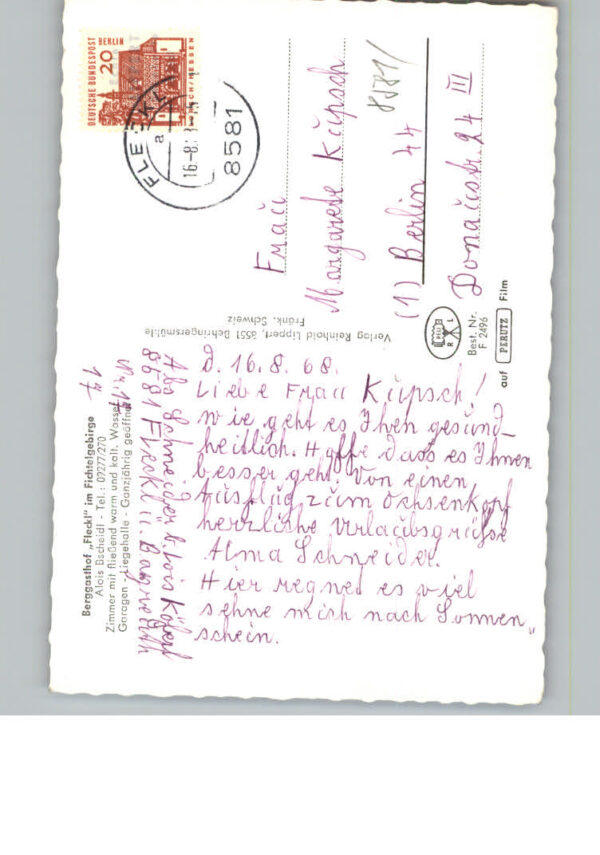 DEUTSCHE BUNDESPOST
BERLIN
20
LORSCH/HESSEN
FLECKL
a
16-8.
8581
8581/
Frau
Margarete Küpsch
(1) Berlin 44
Donaustr. 24 III
Verlag Reinhold Lippert, 8551 Behringersmühle
Fränk. Schweiz
R L
Best. Nr.
F 2496
auf PERUTZ Film
Berggasthof „Fleckl" im Fichtelgebirge
Alois Bscheidl - Tel.: 09277/270
Zimmer mit fließend warm und kalt. Wasser
Garagen - Liegehalle - Ganzjährig geöffnet
Abs Schneider b. Lois
8581 Fleckl ü. Bayreuth
Nr. 17
17
d. 16. 8. 68.
Liebe Frau Küpsch!
Wie geht es Ihen gesund-
heitlich. Hoffe dass es Ihnen
besser geht. Von einen
Ausflug zum Ochsenkopf
herzliche Urlaubsgrüsse
Alma Schneider.
Hier regnet es viel
sehne mich nach Sonnen„
schein.